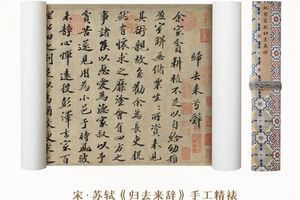 歸去來兮辭
余家貧耕植不足以自給幼稚
盈室缾無儲粟生生所資未見
其術親故多勸余為長吏脫
然有懷求之靡途會有四方之
事諸侯以惠愛為德家叔以余
貧苦遂見用為小邑于時風波
未靜心憚遠役彭澤去家百
里公田之利足以為
宋·苏轼《归去来辞》手工精裱